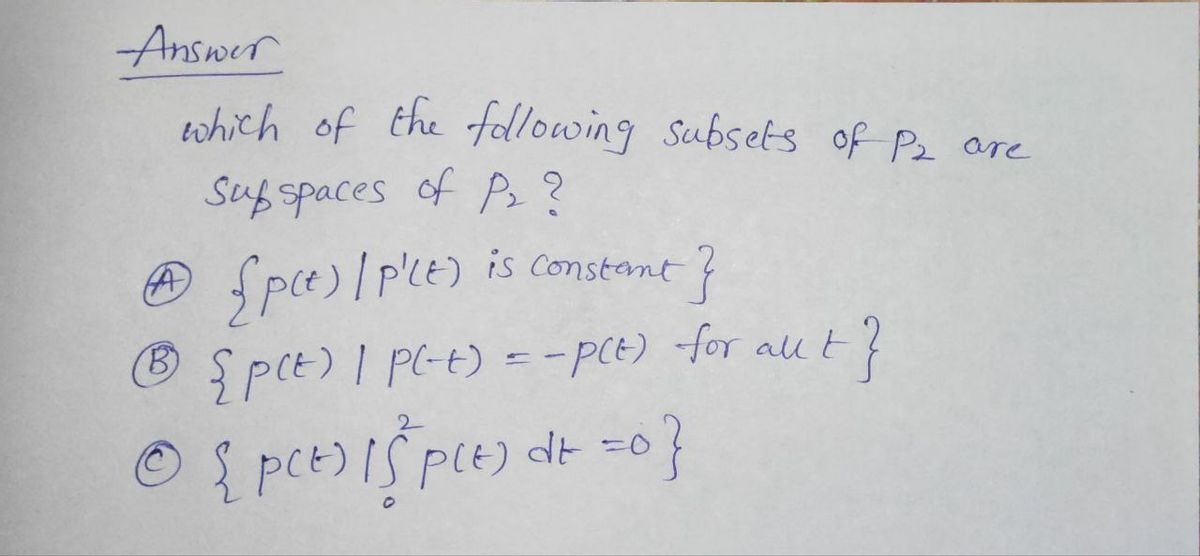 Answer
which of the following subsets of P₂ are
subspaces of P₂ ?
Ⓐ {p(t) | p'(t) is constant}
Ⓑ {p(t) | p(-t) = -p(t) for all t}
Ⓒ {p(t) | ∫₀² p(t) dt = 0}